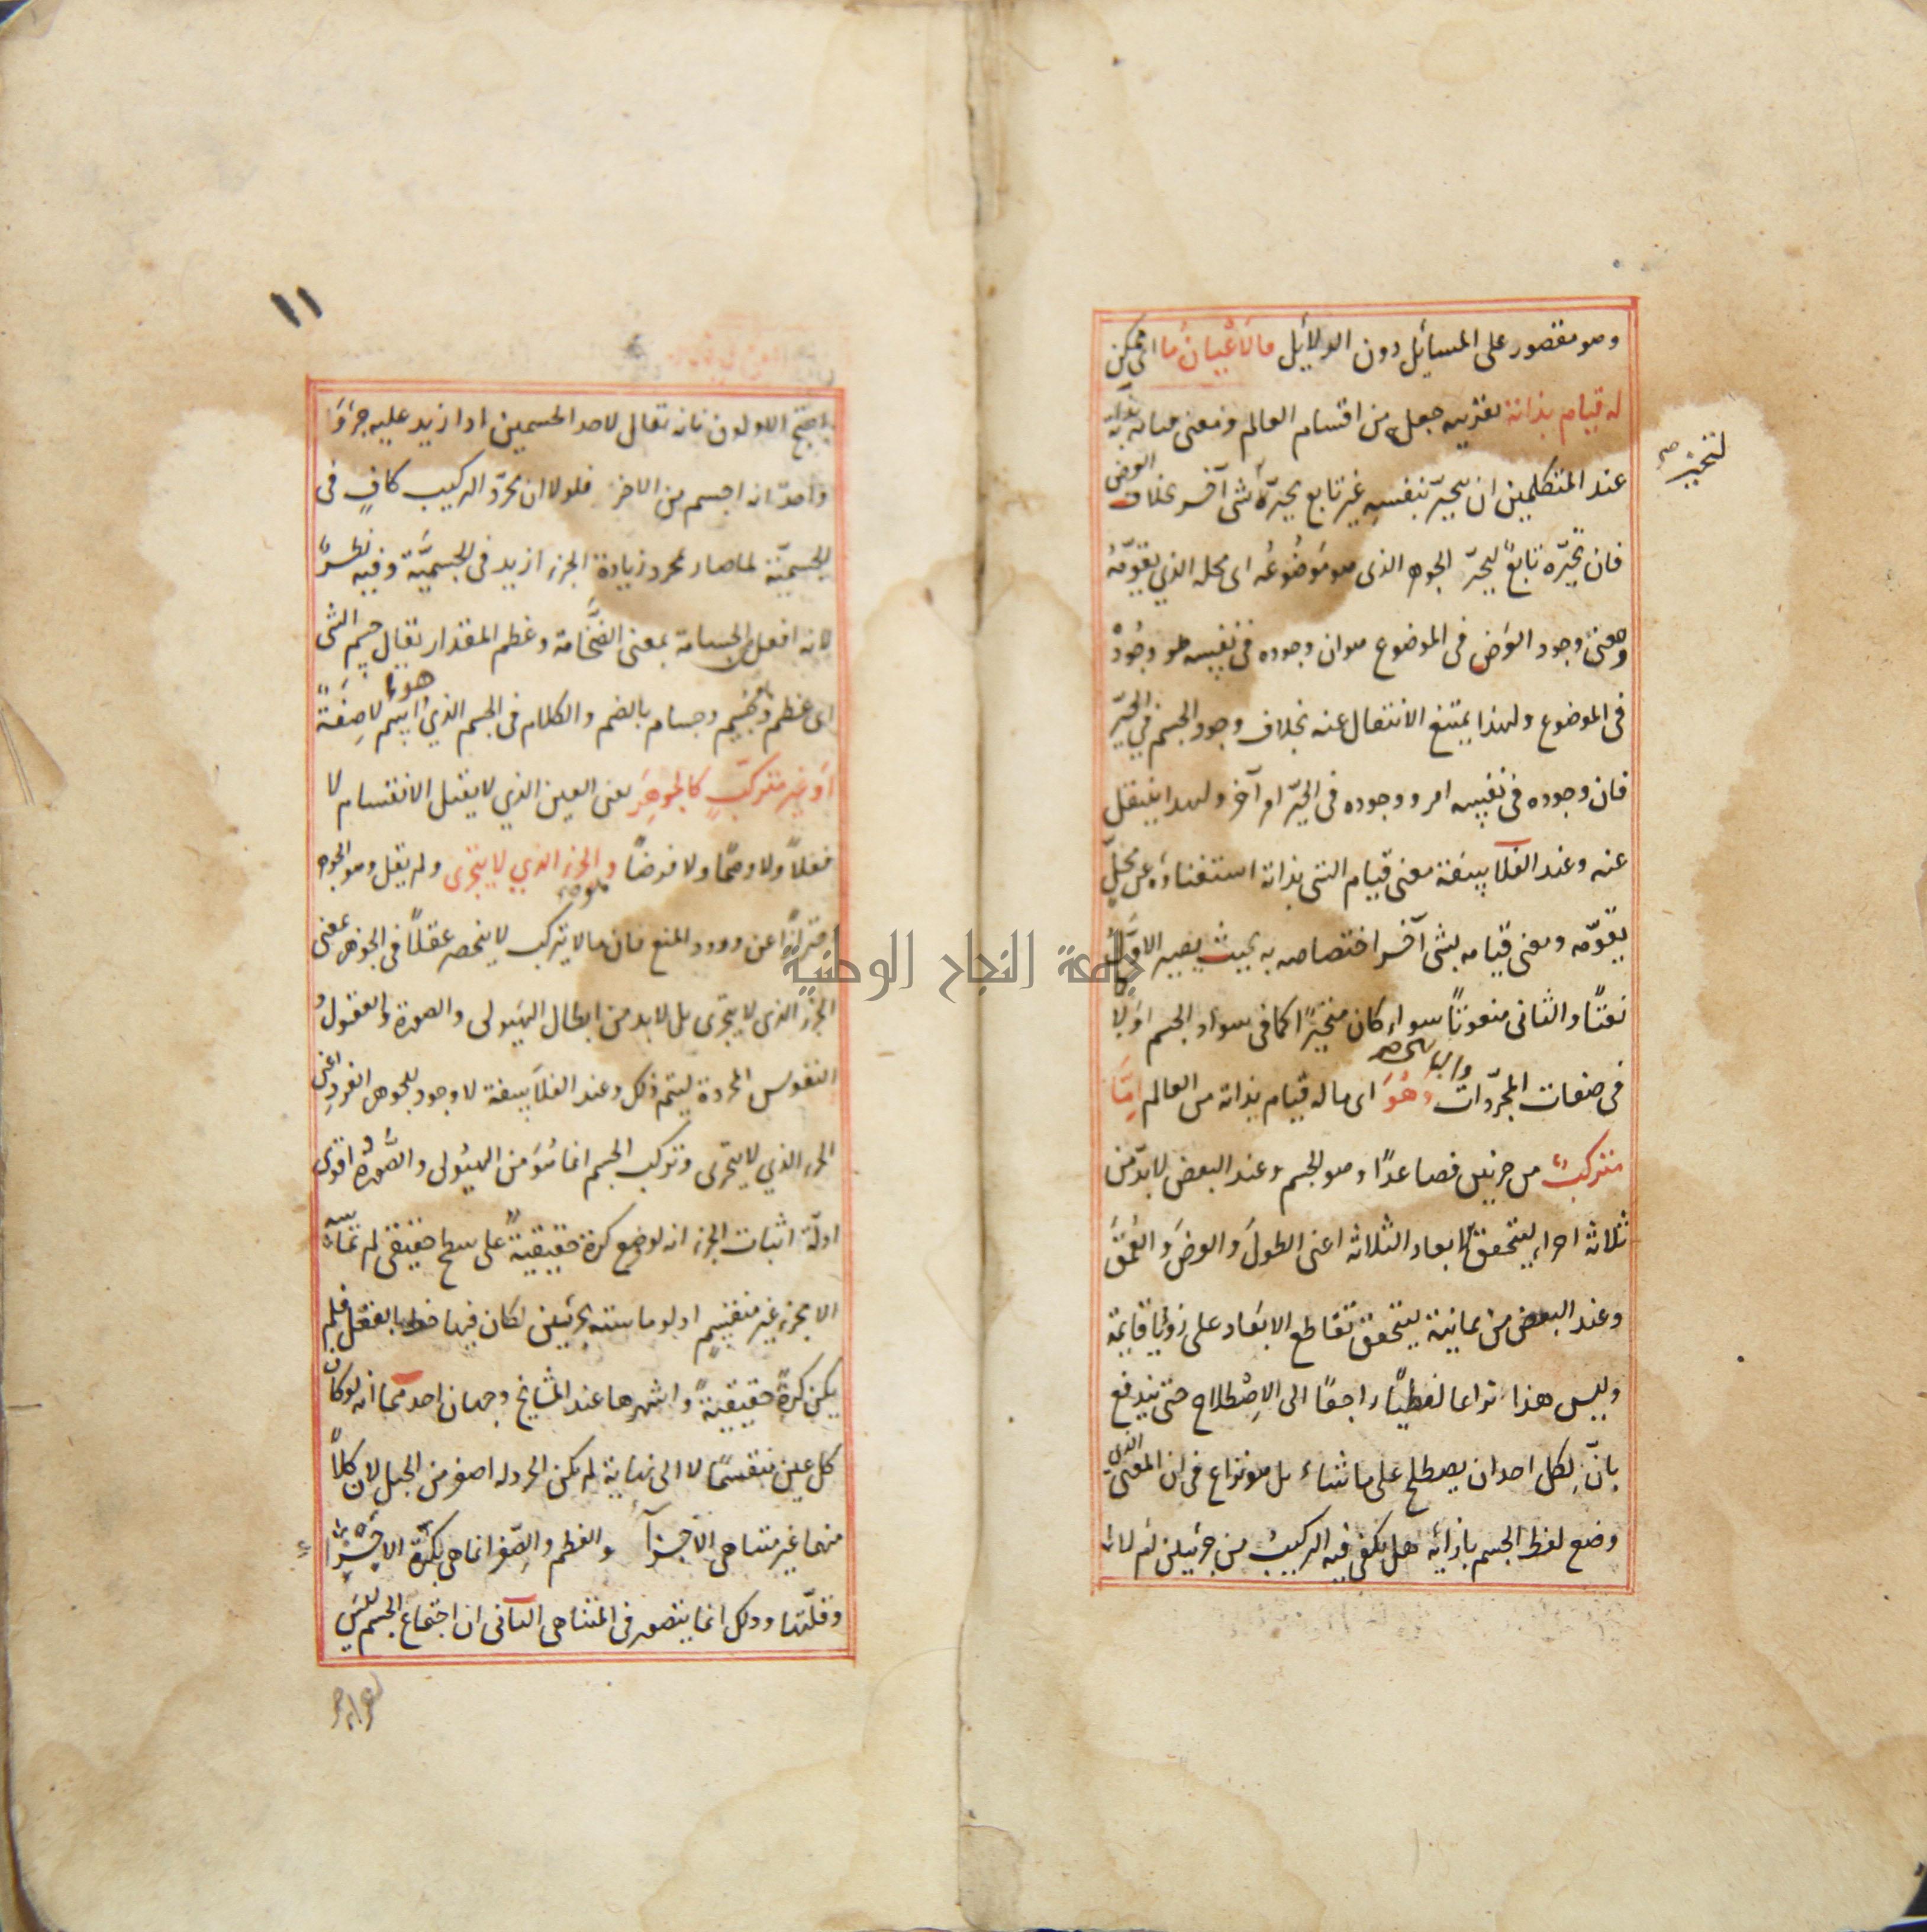 وهو مقصور على المسائل دون الدلائل فالاعيان ما اى ممكن
له قيام بذاته بقرينة جعله من اقسام العالم ومعنى قيامه بذاته
عند المتكلمين ان يتحيز بنفسه غير تابع تحيزه لتحيز شئ آخر بخلاف العرض
فان تحيزه تابع لتحيز الجوهر الذى هو موضوعه اى محله الذي يقومه
ومعنى وجود العرض فى الموضوع هو ان وجوده فى نفسه هو وجوده
فى الموضوع ولهذا يمتنع الانتقال عنه بخلاف وجود الجسم في الحيز
فان وجوده فى نفسه امر ووجوده فى الحيز امر آخر ولهذا ينتقل
عنه وعند الفلاسفة معنى قيام الشئ بذاته استغناؤه عن محل
يقومه ومعنى قيامه بشئ آخر اختصاصه به بحيث يصير الاول
نعتا والثانى منعوتا سواء كان متحيزا كما فى سواد الجسم او لا كما
فى صفات المجردات وهو اى ما له قيام بذاته من العالم اما
متركب من جزئين فصاعدا وهو الجسم وعند البعض لا بد من
ثلاثة اجزاء ليتحقق الابعاد الثلاثة اعنى الطول والعرض والعمق
وعند البعض من ثمانية ليتحقق تقاطع الابعاد على زوايا قايمة
وليس هذا نزاعا لفظيا راجعا الى الاصطلاح حتى يندفع
بان لكل احد ان يصطلح على ما شاء بل هو نزاع فى ان المعنى الذي
وضع لفظ الجسم بازائه هل يكفى فيه التركيب من جزئين ام لا
لتحيز صح
١١
احتج الاولون بانه يقال لاحد الجسمين اذا ازيد عليه جزؤ
واحد انه اجسم من الاخر فلولا ان مجرد التركيب كاف فى
الجسمية لما صار بمجرد زيادة الجزء ازيد فى الجسمية وفيه نظر
لانه افعل من الجسامة بمعنى الضخامة وعظم المقدار يقال جسم الشئ
اى عظم فهو جسيم وجسام بالضم والكلام فى الجسم الذي هو اسم لا صفة
او غير متركب كالجوهر يعنى العين الذي لا يقبل الانقسام لا
فعلا ولا وهما ولا فرضا وهو الجزء الذي لا يتجزى ولم يقل وهو الجوهر
احترازا عن ورود المنع فان ما لا يتركب لا ينحصر عقلا فى الجوهر بمعنى
الجزء الذى لا يتجزى بل لا بد من ابطال الهيولى والصورة والعقول و
النفوس المجردة ليتم ذلك وعند الفلاسفة لا وجود للجوهر الفرد اعنى
الجزء الذي لا يتجزى وتركب الجسم انما هو من الهيولى والصورة اقوى
ادلة اثبات الجزء انه لو وضع كرة حقيقية على سطح حقيقى لم تماسه
الا بجزء غير منقسم اذ لو ماسته بجزئين لكان فيها خط بالفعل فلم
يكن كرة حقيقية واشهرها عند المشايخ وجهان احدهما انه لو كان
كل عين منقسما لا الى نهاية لم يكن الخردلة اصغر من الجبل لان كلا
منهما غير متناهى الاجزآ والعظم والصغر انما هى بكثرة الاجزاء
وقلتها وذلك انما يتصور فى المتناهى الثانى ان اجتماع الجسم ليس
جامعة النجاح الوطنية